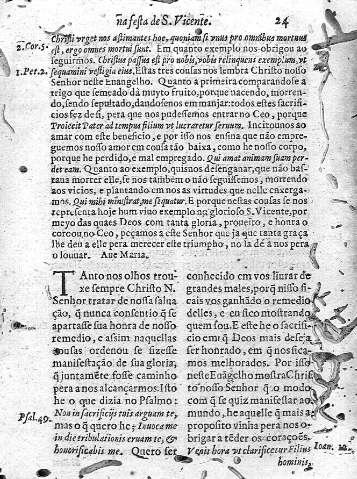 na festa de S. Vicente. 24
Christi urget nos æstimantes hoc, quoniam si unus pro omnibus mortuus
2. Cor. 5. est, ergo omnes mortui sunt. Em quanto exemplo nos obrigou ao
seguirmos. Christus passus est pro nobis, vobis relinquens exemplum, ut
1. Pet. 2. sequamini vestigia eius. Estas tres cousas nos lembra Christo nosso
Senhor neste Euangelho. Quanto a primeira comparandose a
trigo que semeado dá muyto fruito, porque nacendo, morren-
do, sendo sepultado, dandosenos em manjar: todos estes sacrifi-
cios fez desi, pera que nos pudessemos entrar no Ceo, porque
Proiecit Pater ad tempus filium ut lucraretur seruum. Incitounos ao
amar com este beneficio, e por isso nos ensina que não empre-
guemos nosso amor em cousa tão baixa, como he nosso corpo,
porque he perdido, e mal empregado. Qui amat animam suam per-
det eam. Quanto ao exemplo, quisnos desenganar, que não bas-
taua morrer elle, se nos tambem o não seguissemos, morrendo
aos vicios, e plantando em nos as virtudes que nelle enxerga-
mos. Qui mihi ministrat, me sequatur. E porque nestas cousas se nos
representa hoje hum viuo exemplo no glorioso S. Vicente, por
meyo das quaes Deos com tanta gloria, proueito, e honra o
coroou no Ceo, peçamos a este Senhor que já que tanta graça
lhe deu a elle pera merecer este triumpho, no la dê a nós pera
o louuar. Aue Maria.
TAnto nos olhos trou-
xe sempre Christo N.
Senhor tratar de nossa salua
ção, q̃ nunca consentio q̃ se
apartasse sua honra de nosso
remedio, e assim naquellas
cousas ordenou se fizesse
manifestação de sua gloria,
q̃ juntamẽte fosse caminho
pera a nos alcançarmos. Isto
he o que dizia no Psalmo:
Psal. 49. Non in sacrificijs tuis arguam te,
mas o q̃ quero he; Inuoca me
in die tribulationis eruam te, &
honorificabis me. Quero ser
conhecido em vos liurar de
grandes males, porq̃ nisso fi-
cais vos ganhãdo o remedio
delles, e eu fico mostrando
quem sou. E este he o sacrifi-
cio em q̃ Deos mais deseja
ser honrado, em q̃ nos fica-
mos melhorados. Por isso
neste Euãgelho mostra Christo
nosso Senhor q̃ o modo
com q̃ se quiz manifestar ao
mundo, he aquelle q̃ mais a
proposito vinha pera nos o-
brigar a têr os corações,
Venit hora ut clarificetur Filius Ioan. 12.
hominis,